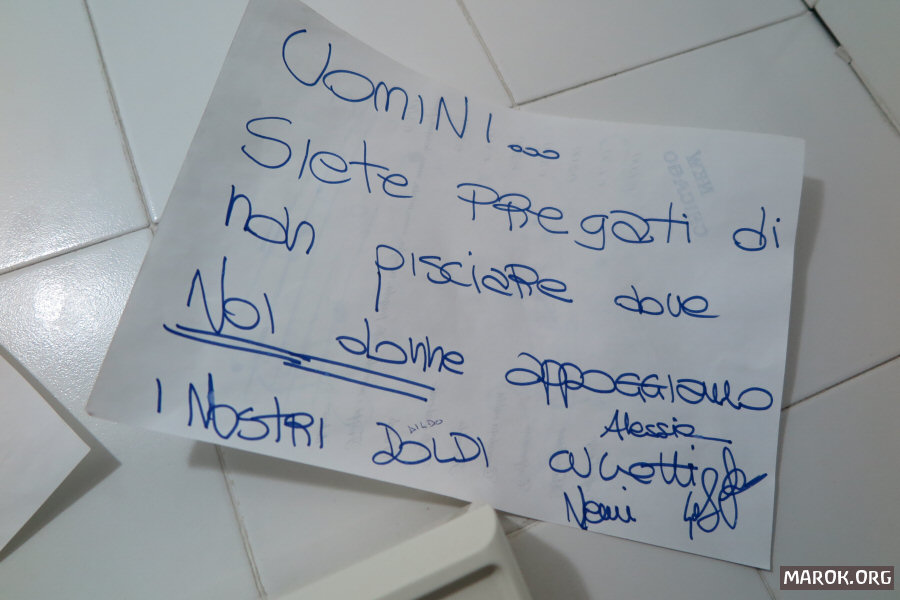 UOMINI...
SIETE PREGATI di
non pisciare dove
Noi donne appoggiamo
Alessia
DILDO
I NOSTRI DOLDI
Nemi
MAROK.ORG